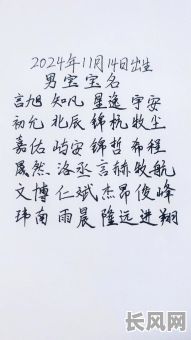 2024年11月14日出生
男宝宝名
言旭 知凡 星逸 宇安
初允 北辰 锦杭 牧尘
嘉佑 屿安 锦哲 希程
晟然 洛丞 言赫 牧航
文博 仁斌 杰昂 俊峰
玮南 雨晨 隆远 进翔
长风网
cfw.cn